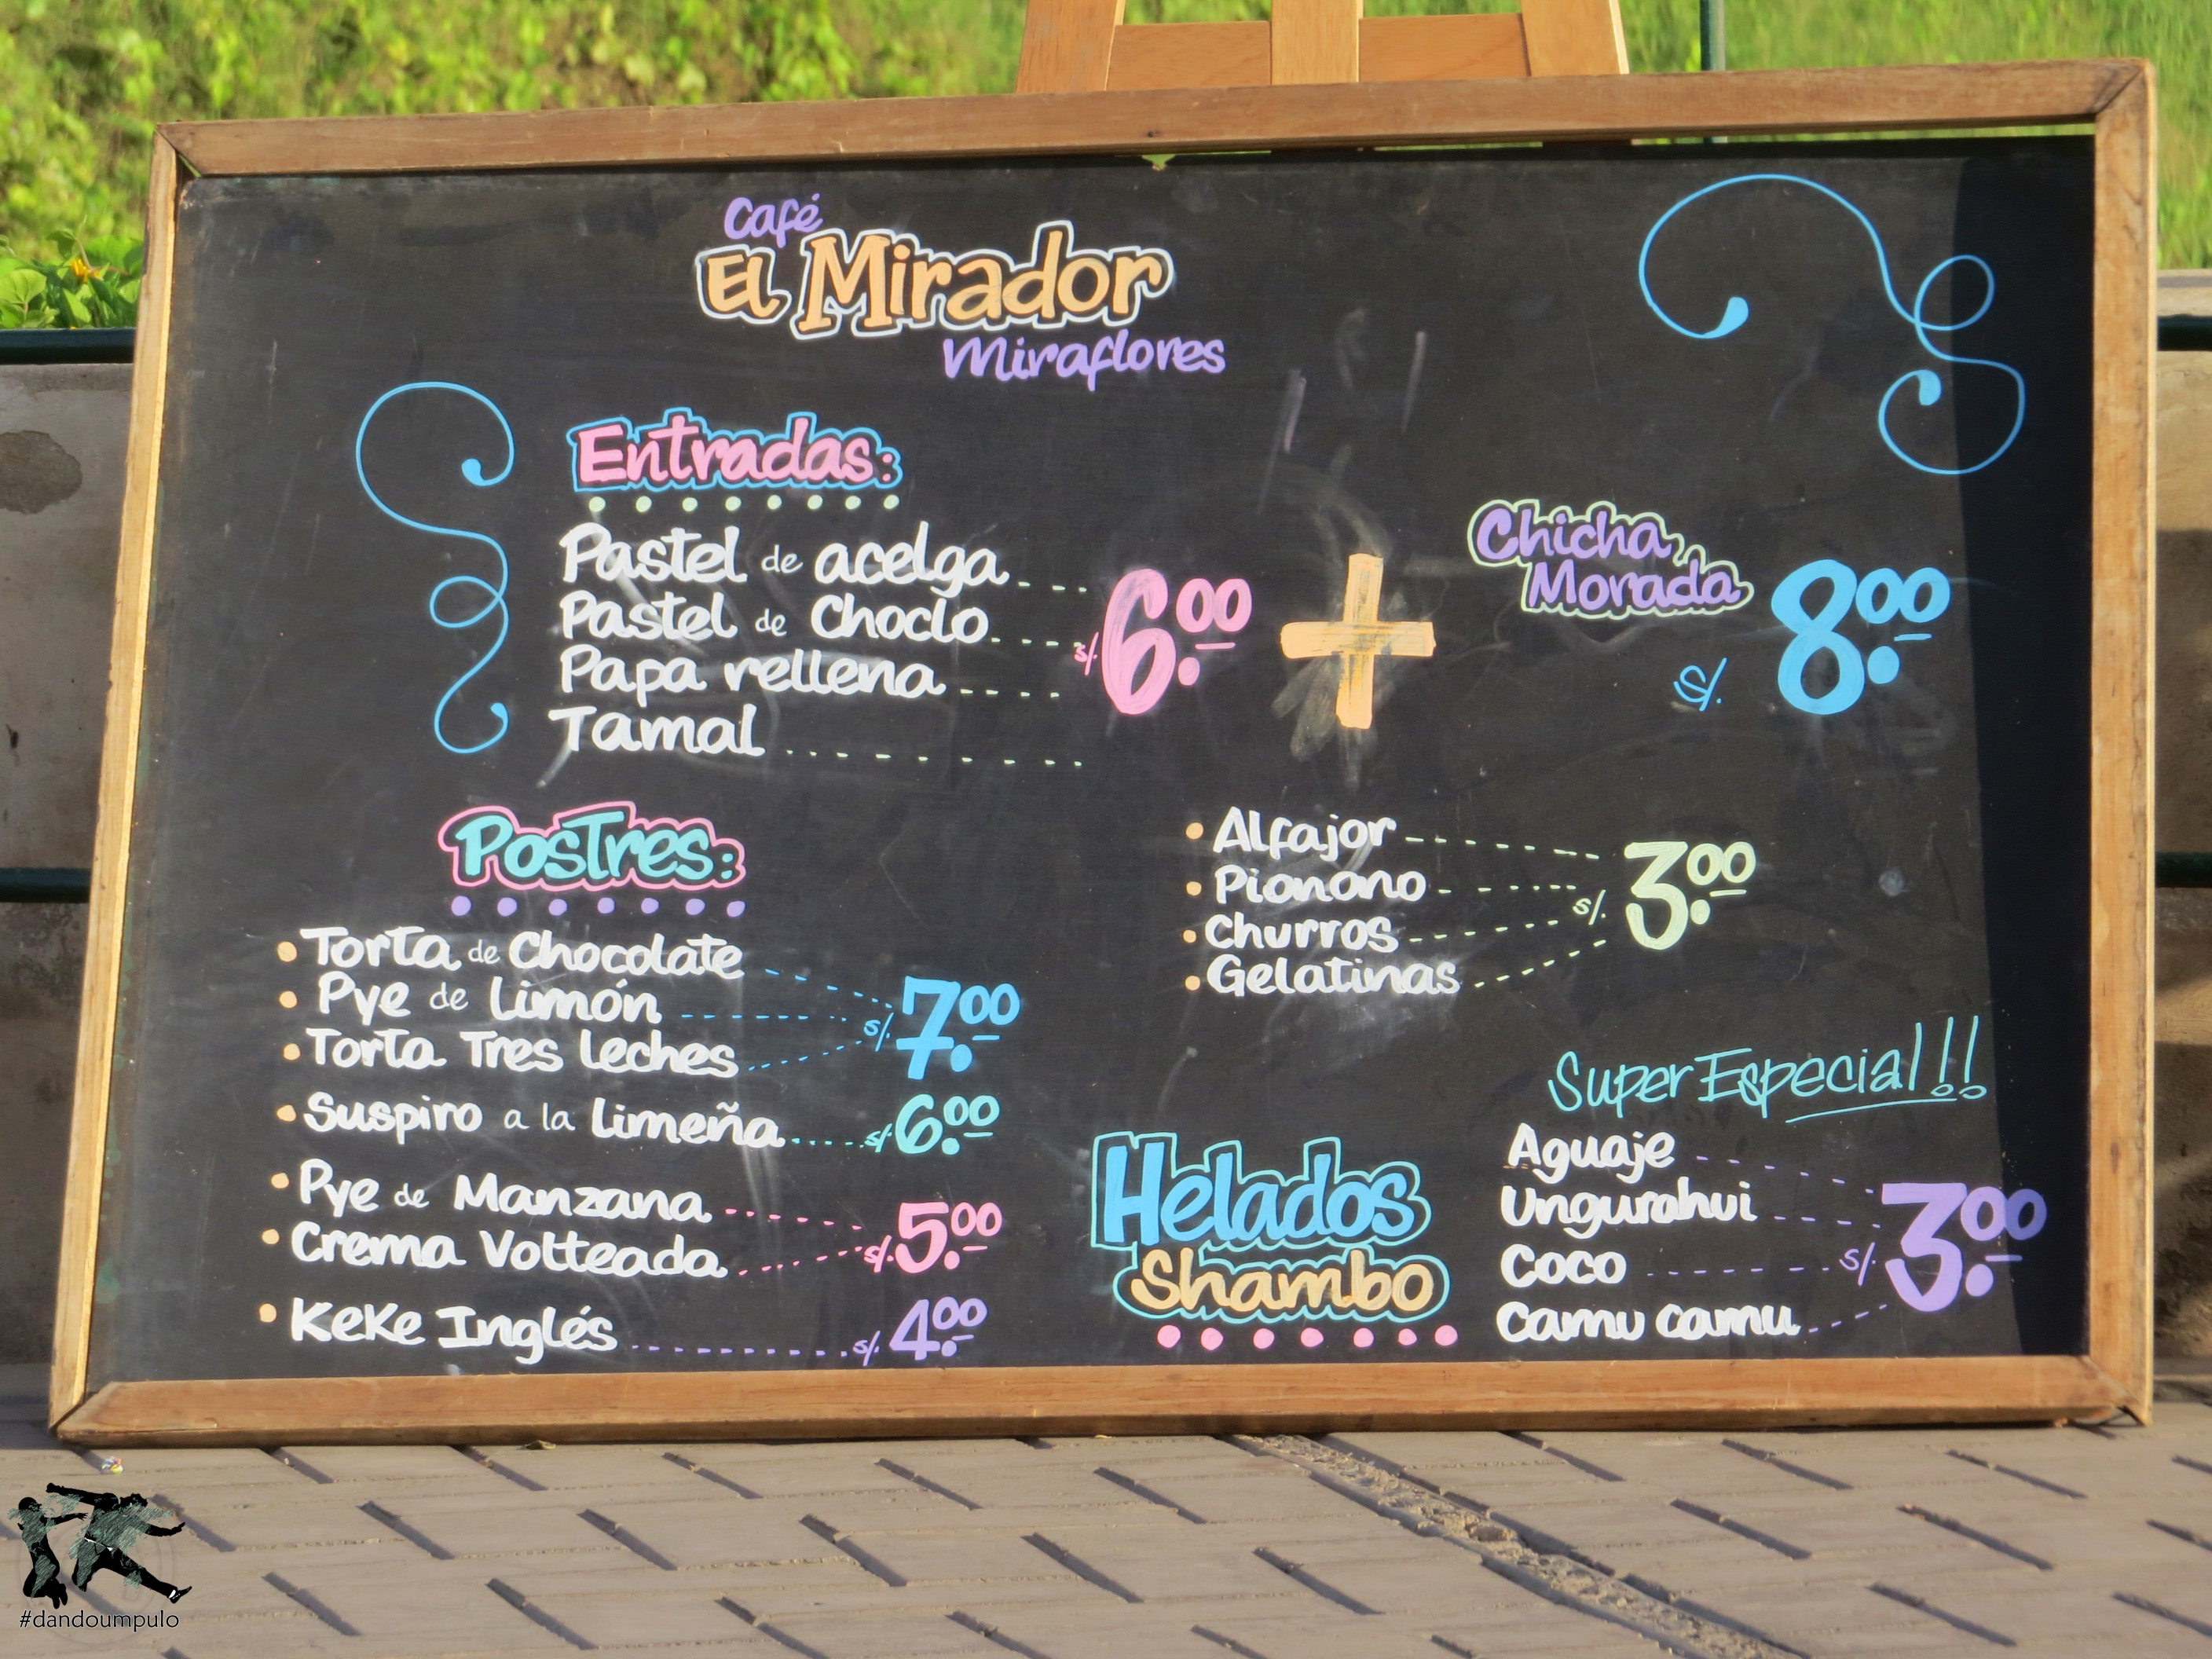 Café
El Mirador
Miraflores
Entradas:
Pastel de acelga
Pastel de Choclo
Papa rellena
Tamal
s/. 6.00
+
Chicha
Morada
s/. 8.00
Postres:
• Torta de Chocolate
• Pye de Limón
• Torta Tres Leches
s/. 7.00
• Suspiro a la Limeña s/. 6.00
• Pye de Manzana
• Crema Volteada
s/. 5.00
• Keke Inglés s/. 4.00
• Alfajor
• Pionono
• Churros
• Gelatinas
s/. 3.00
Super Especial!!!
Helados
Shambo
Aguaje
Ungurahui
Coco
Camu camu
s/. 3.00
#dandoumpulo